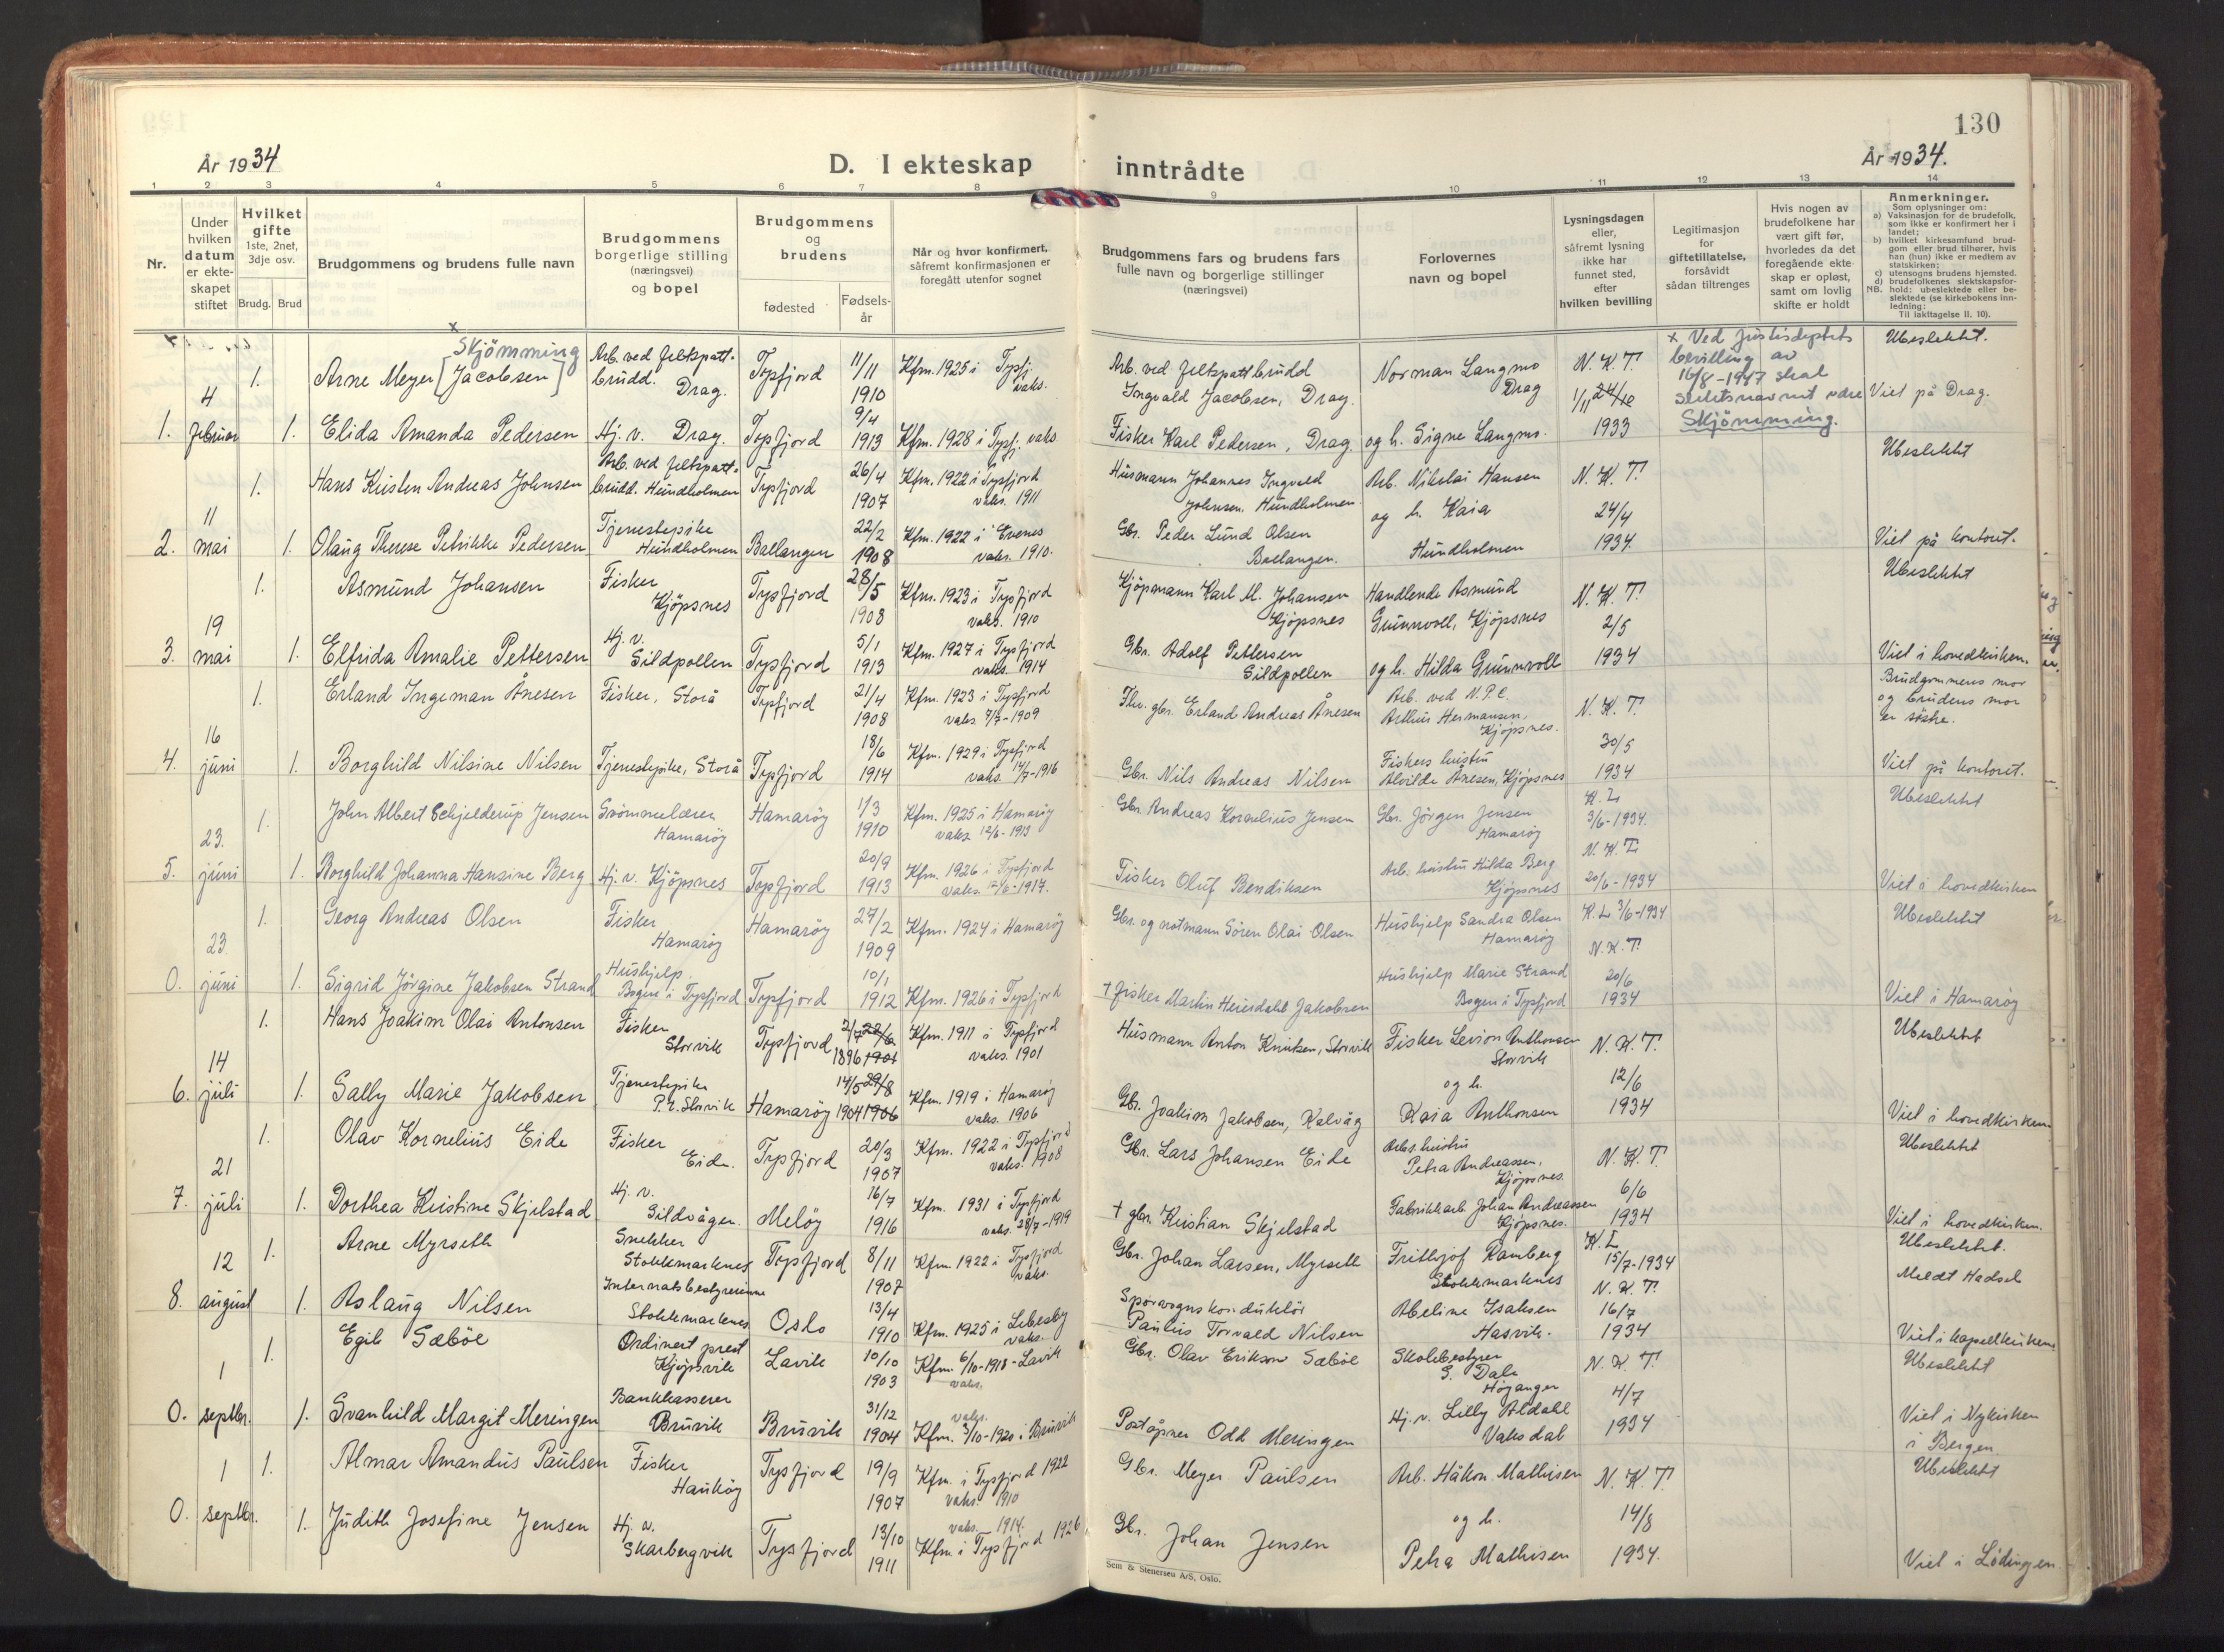 130
År 1934
D. I ekteskap inntrådte
År 1934.
1 2 3 4 5 6 7 8 9 10 11 12 13 14
Nr.
Under hvilken datum er ekte-skapet stiftet
Hvilket gifte
1ste, 2net, 3dje osv.
Brudg. Brud
Brudgommens og brudens fulle navn
Brudgommens borgerlige stilling (næringsvei) og bopel
Brudgommens og brudens
fødested
Fødsels-år
Når og hvor konfirmert, såfremt konfirmasjonen er foregått utenfor sognet
Brudgommens fars og brudens fars fulle navn og borgerlige stillinger (næringsvei)
Forlovernes navn og bopel
Lysningsdagen eller, såfremt lysning ikke har funnet sted, efter hvilken bevilling
Legitimasjon for giftetillatelse, forsåvidt sådan tiltrenges
Hvis nogen av brudefolkene har vært gift før, hvorledes da det foregående ekte-skap er opløst, samt om lovlig skifte er holdt
Anmerkninger.
Som oplysninger om:
a) Vaksinasjon for de brudefolk, som ikke er konfirmert her i landet;
b) hvilket kirkesamfund brud-gom eller brud tilhører, hvis han (hun) ikke er medlem av statskirken;
c) utensogns brudens hjemsted.
d) brudefolkenes slektskapsfor-
NB. hold: ubeslektede eller be-slektede (se kirkebokens inn-ledning:
Til iakttagelse II. 10).
1. 4 februar
1. x Skjömming
Arne Meyer [Jacobsen] Arb. ved feltspatt-brudd. Drag. Tysfjord 11/11 1910 Kfm. 1925 i Tysfj. vaks. Arb. ved feltspattbrudd Ingvald Jacobsen, Drag. Norman Langmo Drag N.K.T. 1/11 24/10 1933 x Ved Justisdeptets bevilling av 16/8-1947 skal slektsnavnet være Skjömming. Ubeslektet.
1. Elida Amanda Pedersen Hj. v. Drag. Tysfjord 9/4 1913 Kfm. 1928 i Tysfj. vaks Fisker Karl Pedersen, Drag. og h. Signe Langmo. Viet på Drag.
2. 11 mai
1. Hans Kristen Andreas Johnsen Arb. ved feltspatt-brudd. Hundholmen Tysfjord 26/4 1907 Kfm. 1922 i Tysfjord vaks. 1911 Husmann Johannes Ingvald Johnsen. Hundholmen. Arb. Nikolai Hansen N.K.T. 24/4 1934. Ubeslektet
1. Olaug Therese Petrikke Pedersen Tjenestepike Hundholmen Ballangen 22/2 1908 Kfm. 1922 i Evenes vaks. 1910. Gbr. Peder Lund Olsen Ballangen. og h. Kaia Hundholmen Viet på kontoret.
3. 19 mai
1. Asmund Johansen Fisker Kjöpsnes Tysfjord 28/5 1908 Kfm. 1923 i Tysfjord vaks. 1910 Kjöpmann Karl M. Johansen Kjöpsnes Handlende Asmund Grunnvoll, Kjöpsnes N.K.T. 2/5 1934 Ubeslektet
1. Elfrida Amalie Pettersen Hj. v. Sildpollen Tysfjord 5/1 1913 Kfm. 1927 i Tysfjord vaks. 1914 Gbr. Adolf Pettersen Sildpollen og h. Hilda Grunnvoll Viet i hovedkirken.
4. 16 juni
1. Erland Ingeman Ånesen Fisker, Storå Tysfjord 21/4 1908 Kfm. 1923 i Tysfjord vaks. 7/7-1909 Fhv. gbr. Erland Andreas Ånesen Arb. ved N.P.C. Arthur Hermansen, Kjöpsnes. N.K.T. 30/5 1934 Brudgommens mor og brudens mor er söskb.
1. Borghild Nilsine Nilsen Tjenestepike, Storå Tysfjord 18/6 1914 Kfm. 1929 i Tysfjord vaks. 14/7-1916 Gbr. Nils Andreas Nilsen Fiskers hustru Alvilde Ånesen, Kjöpsnes Viet på kontoret.
5. 23. juni
1. John Albert Schjelderup Jensen Svömmelærer Hamaröy Hamaröy 1/3 1910 Kfm. 1925 i Hamaröy vaks. 12/6-1913 Gbr. Andreas Kornelius Jensen Gbr. Jörgen Jensen Hamaröy K.L. 3/6-1934. Ubeslektet
1. Borghild Johanna Hansine Berg Hj. v. Kjöpsnes Tysfjord 20/9 1913 Kfm. 1926 i Tysfjord vaks. 12/6-1917. Fisker Oluf Bendiksen Arb. hustru Hilda Berg Kjöpsnes N.K.T. 20/6-1934 Viet i hovedkirken
0. 23 juni
1. Georg Andreas Olsen Fisker Hamaröy Hamaröy 27/2 1909 Kfm. 1924 i Hamaröy Gbr. og notmann Sören Olai Olsen Hushjelp Sandra Olsen Hamaröy K.L. 3/6-1934 Ubeslektet
1. Sigrid Jörgine Jakobsen Strand Hushjelp. Bogen i Tysfjord Tysfjord 10/1 1912 Kfm. 1926 i Tysfjord † Fisker Martin Heierdahl Jakobsen Hushjelp Marie Strand Bogen i Tysfjord N.K.T. 20/6 1934 Viet i Hamaröy
6. 14 juli
1. Hans Joakim Olai Antonsen Fisker Storvik Tysfjord 2/7 22/6 1896 1901 Kfm. 1911 i Tysfjord vaks. 1901 Husmann Anton Knutsen, Storvik Fisker Levion Anthonsen Storvik N.K.T. 12/6 1934 Ubeslektet
1. Sally Marie Jakobsen Tjenestepike P.t. Storvik Hamaröy 14/5 29/8 1904 1906 Kfm. 1919 i Hamaröy vaks. 1906 Gbr. Joakim Jakobsen, Kalvåg og h. Kaia Anthonsen Viet i hovedkirken
7. 21 juli
1. Olav Kornelius Eide Fisker Eide. Tysfjord 20/3 1907 Kfm. 1922 i Tysfjord vaks. 1908 Gbr. Lars Johansen Eide Arbs. hustru Petra Andreassen, Kjöpsnes. N.K.T. 6/6 1934 Ubeslektet
1. Dorthea Kristine Skjelstad Hj. v. Sildvågen. Melöy 16/7 1916 Kfm. 1931 i Tysfjord vaks. 28/7-1919 † gbr. Kristian Skjelstad Fabrikkarb. Johan Andreassen Kjöpsnes. Viet i hovedkirken.
8. 12 august
1. Arne Myrseth Snekker Stokkmarknes Tysfjord 8/11 1907 Kfm. 1922 i Tysfjord vaks. Gbr. Johan Larsen, Myrseth Frithjof Ramberg Stokkmarknes K.L. 15/7-1934 Ubeslektet.
Meldt Hadsel
1. Aslaug Nilsen Internatsbestyrerinne Stokkmarknes Oslo 13/4 1910 Kfm. 1925 i Lebesby vaks. Sporvognskonduktör Paulus Torvald Nilsen Abeline Isaksen Hasvik. N.K.T. 16/7 1934 Viet i kapellkirken
0. 1 septbr.
1. Egil Sæböe Ordinert prest Kjöpsvik Lavik 10/10 1903 Kfm. 6/10-1918 - Lavik vaks. Gbr. Olav Erikson Sæböe Skolebestyrer S. Dale Höyanger N.K.T. 4/7 1934 Ubeslektet
1. Svanhild Margit Meringen Bankkasserer Bruvik Bruvik 31/12 1904 vaks. Kfm. 3/10-1920 i Bruvik Poståpner Odd Meringen Hj. v. Lilly Aldahl Vaksdal Viet i Nykirken i Bergen.
0. 1 septbr.
1. Almar Amandus Paulsen Fisker Hauköy Tysfjord 19/9 1907 Kfm. i Tysfjord 1922 vaks. 1910 Gbr. Meyer Paulsen Arb. Håkon Mathisen N.K.T. 14/8 1934. Ubeslektet
1. Judith Josefine Jensen Hj. v. Skarbergvik Tysfjord 13/10 1911 vaks. 1914. Kfm. i Tysfjord 1926 Gbr. Johan Jensen og h. Petra Mathisen Viet i Lödingen
Sem & Stenersen A/S, Oslo.